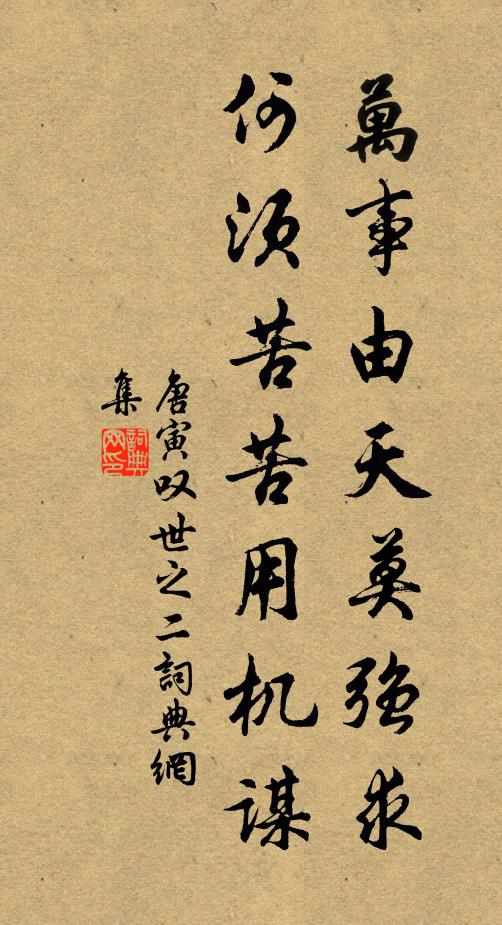 萬事由天莫強求
何須苦苦用机謀
唐寅叹世之二詞典網
集
詞典网印